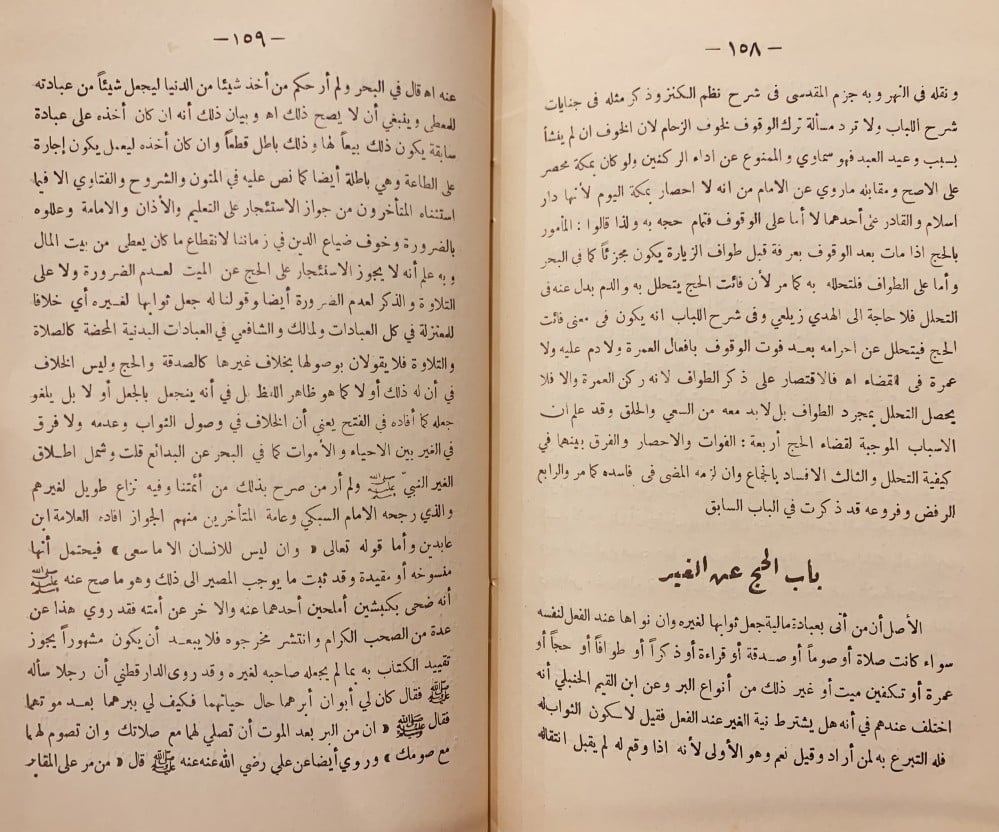 — ١٥٨ —
ونقله فى النهر وبه جزم المقدسى فى شرح نظم الكنز وذكر مثله فى جنايات
شرح اللباب ولا ترد مسألة ترك الوقوف لخوف الزحام لان الخوف ان لم ينشأ
بسبب وعيد العبد فهو سماوي والممنوع عن اداء الركنين ولو كان بمكة محصر
على الاصح ومقابله ماروي عن الامام من انه لا احصار بمكة اليوم لأنها دار
اسلام والقادر على أحدهما لا أما على الوقوف فتمام حجه به ولذا قالوا : المأمور
بالحج اذا مات بعد الوقوف بعرفة قبل طواف الزيارة يكون مجزئاً كما فى البحر
وأما على الطواف فلتحلله به كما مر لأن فائت الحج يتحلل به والدم بدل عنه فى
التحلل فلا حاجة الى الهدي زيلعي وفى شرح اللباب انه يكون فى معنى فائت
الحج فيتحلل عن احرامه بعد فوت الوقوف بافعال العمرة ولا دم عليه ولا
عمرة فى القضاء اه فالاقتصار على ذكر الطواف لانه ركن العمرة والا فلا
يحصل التحلل بمجرد الطواف بل لابد معه من السعي والحلق وقد علم ان
الاسباب الموجبة لقضاء الحج أربعة : الفوات والاحصار والفرق بينها في
كيفية التحلل والثالث الافساد بالجماع وان لزمه المضى فى فاسده كما مر والرابع
الرفض وفروعه قد ذكرت في الباب السابق
باب الحج عن الغير
الأصل أن من أتى بعبادة مالية جعل ثوابها لغيره وان نواها عند الفعل لنفسه
سواء كانت صلاة أو صوماً أو صدقة أو قراءة أو ذكراً أو طوافاً أو حجاً أو
عمرة أو تكفين ميت أو غير ذلك من أنواع البر وعن ابن القيم الحنبلي أنه
اختلف عندهم في أنه هل يشترط نية الغير عند الفعل فقيل لا لكون الثواب له
فله التبرع به لمن أراد وقيل نعم وهو الأولى لأنه اذا وقع له لم يقبل انتقاله
— ١٥٩ —
عنه اه قال في البحر ولم أر حكم من أخذ شيئا من الدنيا ليجعل شيئاً من عبادته
للمعطى وينبغي أن لا يصح ذلك اه وبيان ذلك أنه ان كان أخذه على عبادة
سابقة يكون ذلك بيعاً لها وذلك باطل قطعاً وان كان أخذه ليعمل يكون إجارة
على الطاعة وهي باطلة أيضا كما نص عليه في المتون والشروح والفتاوي الا فيما
استثناه المتأخرون من جواز الاستئجار على التعليم والأذان والامامة وعللوه
بالضرورة وخوف ضياع الدين في زماننا لانقطاع ما كان يعطى من بيت المال
وبه علم أنه لا يجوز الاستئجار على الحج عن الميت لعدم الضرورة ولا على
التلاوة والذكر لعدم الضرورة أيضا وقولنا له جعل ثوابها لغيره أي خلافا
للمعتزلة في كل العبادات ولمالك والشافعي في العبادات البدنية المحضة كالصلاة
والتلاوة فلا يقولان بوصولها بخلاف غيرها كالصدقة والحج وليس الخلاف
في أن له ذلك أو لا كما هو ظاهر اللفظ بل في أنه ينجعل بالجعل أو لا بل يلغو
جعله كما أفاده في الفتح يعني أن الخلاف في وصول الثواب وعدمه ولا فرق
في الغير بين الاحياء والأموات كما في البحر عن البدائع قلت وشمل اطلاق
الغير النبي ﷺ ولم أر من صرح بذلك من أئمتنا وفيه نزاع طويل لغيرهم
والذي رجحه الامام السبكي وعامة المتأخرين منهم الجواز افاده العلامة ابن
عابدين وأما قوله تعالى « وان ليس للانسان الا ما سعى » فيحتمل أنها
منسوخه أو مقيدة وقد ثبت ما يوجب المصير الى ذلك وهو ما صح عنه ﷺ
أنه ضحى بكبشين أملحين أحدهما عنه والاخر عن أمته فقد روي هذا عن
عدة من الصحب الكرام وانتشر مخرجوه فلا يبعد أن يكون مشهوراً يجوز
تقييد الكتاب به بما لم يجعله صاحبه لغيره وقد روى الدار قطني أن رجلا سأله
ﷺ فقال كان لي أبوان أبرهما حال حياتهما فكيف لي ببرهما بعد موتهما
فقال ﷺ « ان من البر بعد الموت أن تصلي لهما مع صلاتك وان تصوم لهما
مع صومك » وروي أيضا عن علي رضي الله عنه عنه ﷺ قال « من مر على المقابر